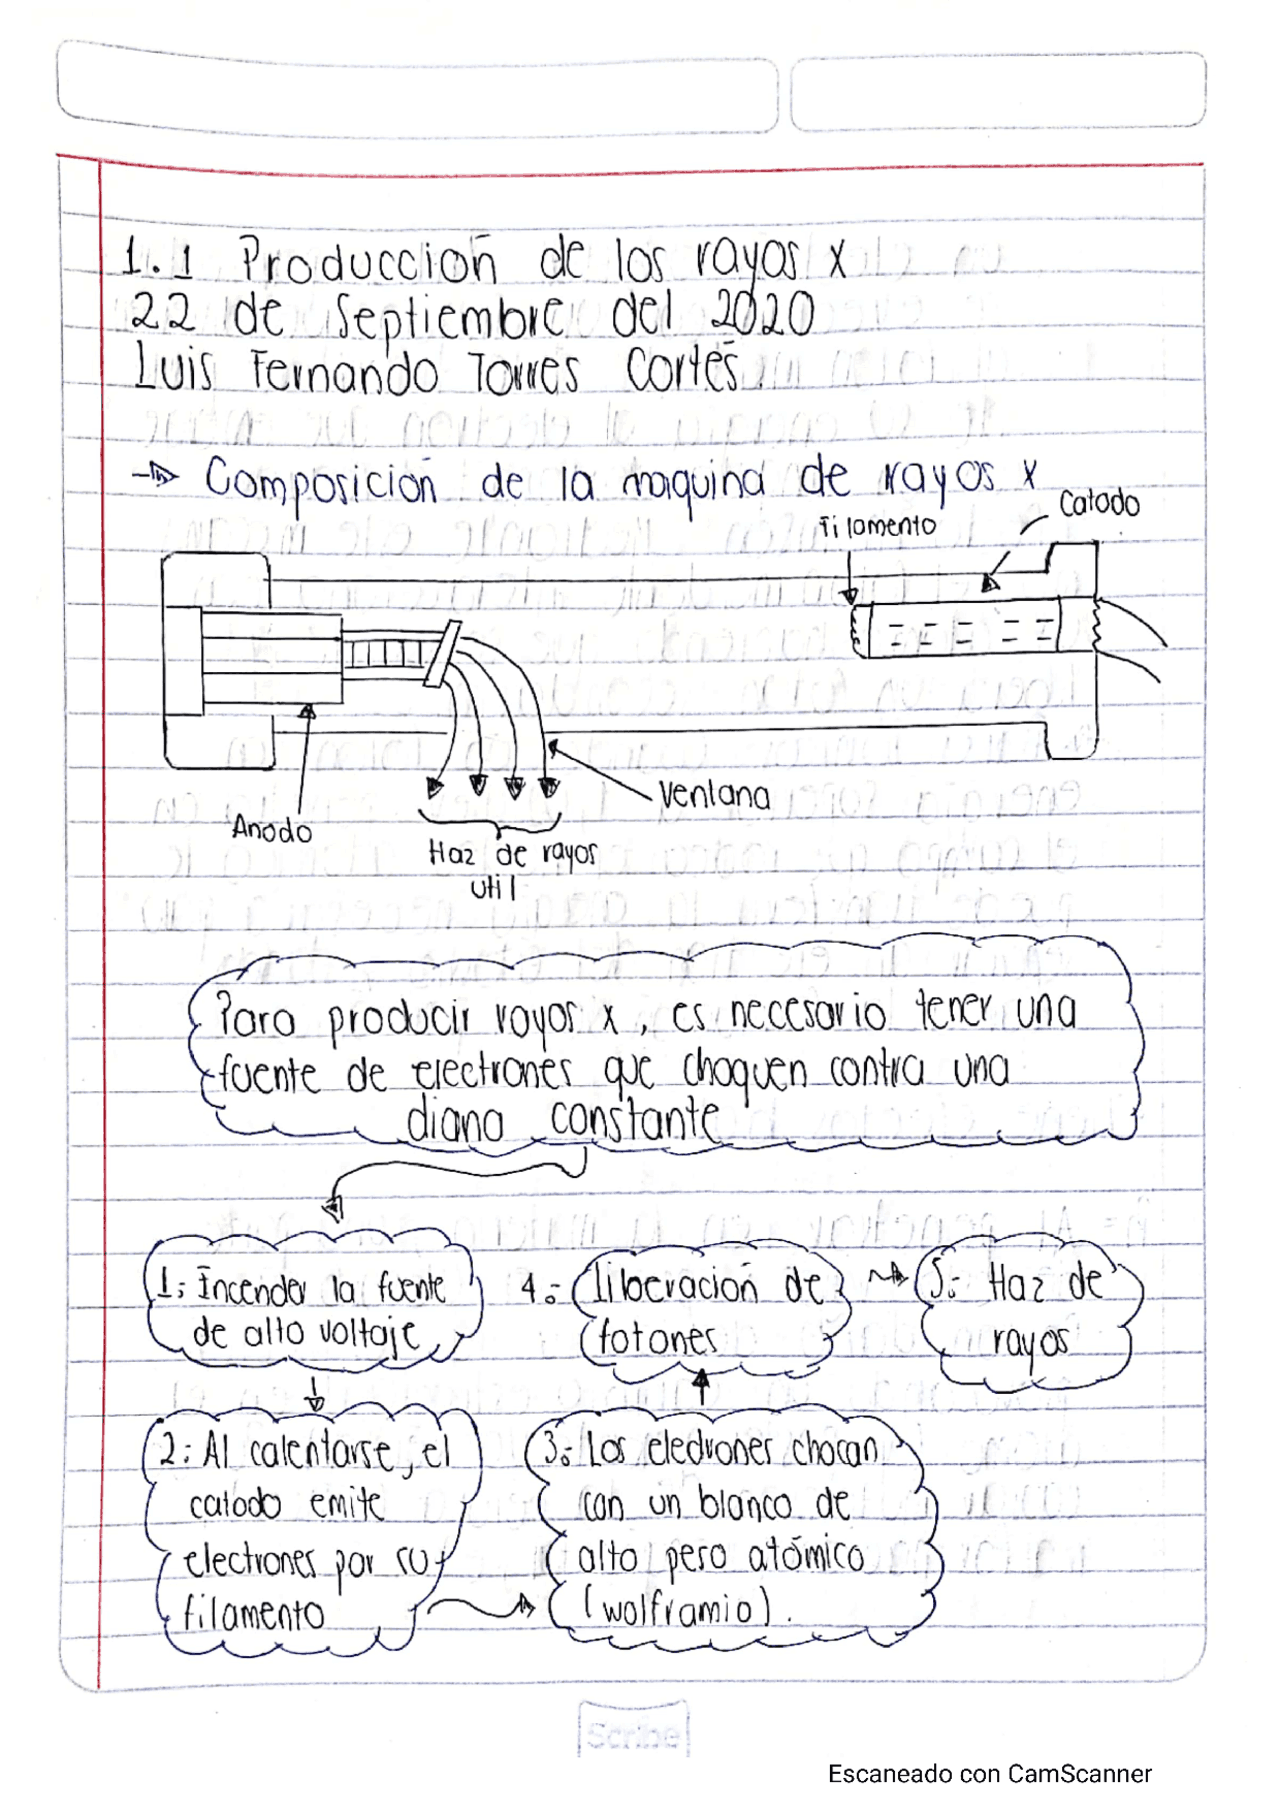 1.1 Producción de los rayos x
22 de Septiembre del 2020
Luis Fernando Torres Cortés.
Composición de la maquina de rayos x
Filamento
Catodo
Ventana
Anodo
Haz de rayos
util
Para producir rayos x, es necesario tener una
fuente de electrones que choquen contra una
diana constante
1: Encender la fuente
de alto voltaje
2: Al calentarse, el
catodo emite
electrones por su
filamento
3: Los electrones chocan
con un blanco de
alto peso atómico
(wolframio).
4: liberación de
fotones
5: Haz de
rayos
Scribe
Escaneado con CamScanner